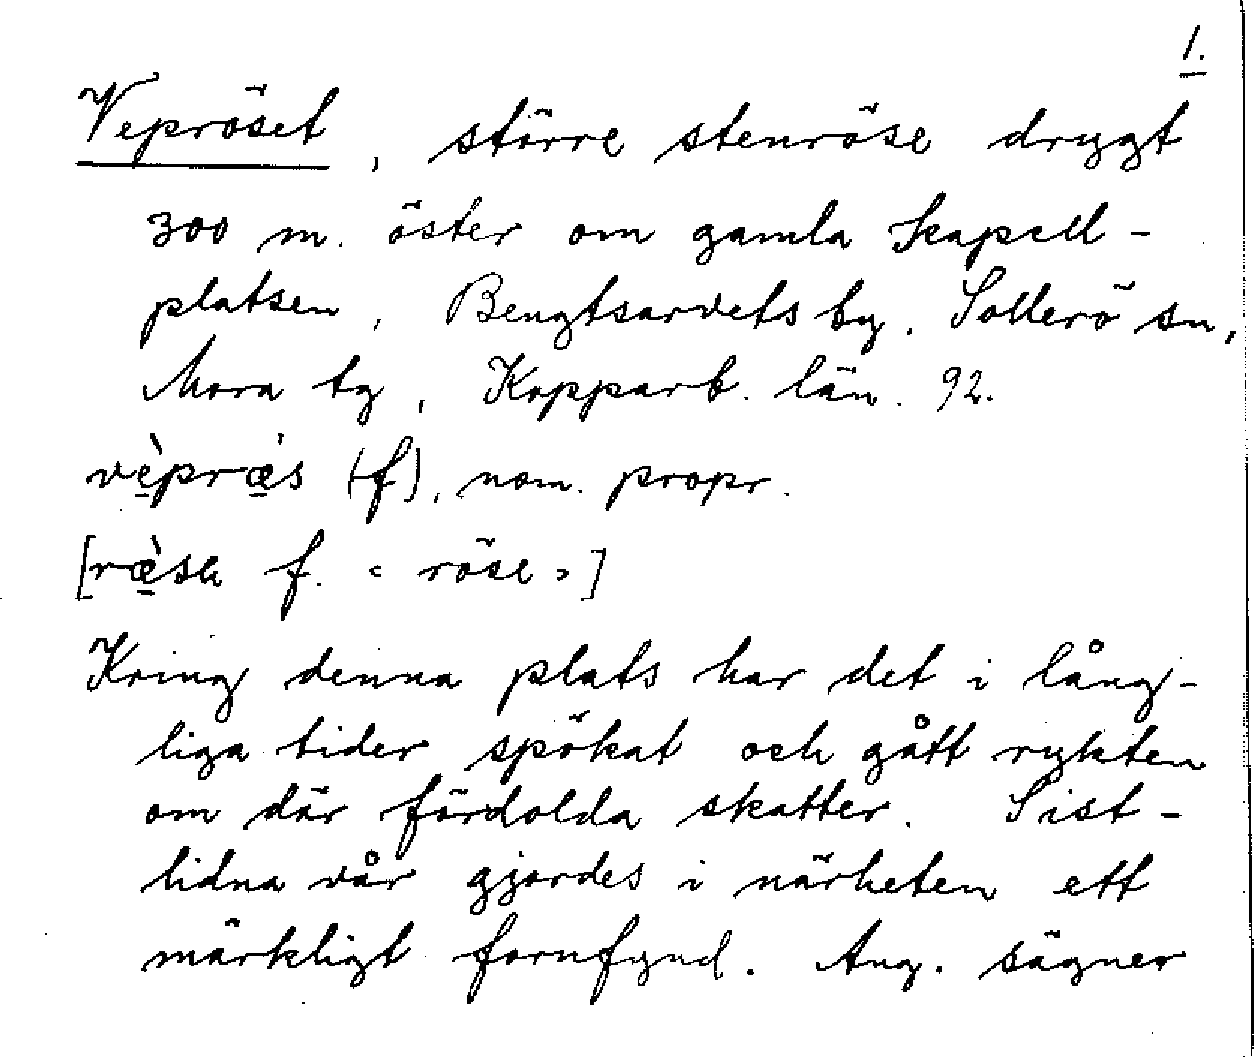 1.
Vepröset, större stenröse drygt
300 m. öster om gamla kapell-
platsen, Bengtsarvets by. Sollerö sn,
Mora tg, Kopparb. län. 92.
vèpræ̀s (f), nom. propr.
[ræ̀sɐ f. < röse >]
Kring denna plats har det i lång-
liga tider spökat och gått rykten
om där fördolda skatter. Sist-
lidna vår gjordes i närheten ett
märkligt fornfynd. Ang. sägner